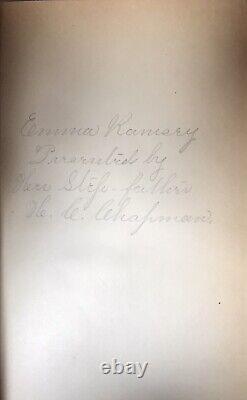 Emma Ramsey
Presented by
Her Step-father
H. C. Chapman.
ebay